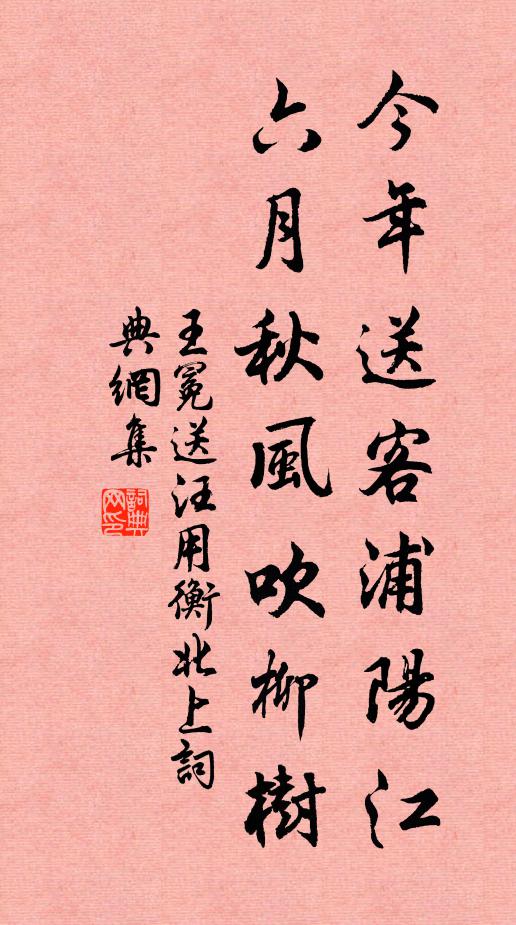 今年送客浦陽江
六月秋風吹柳樹
王冕送汪用衡北上詞
典網集
詞典
网印